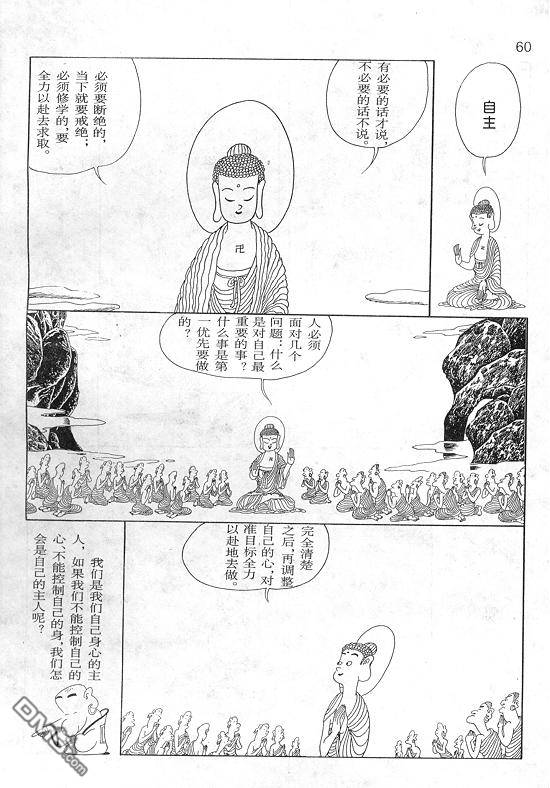 60
自主
有必要的话才说，
不必要的话不说。
必须要断绝的，
当下就要戒绝；
必须修学的，要
全力以赴去求取。
人必须
面对几个
问题：什么
是对自己最
重要的事？
什么事是第
一优先要做
的？
完全清楚
之后，再调整
自己的心，对
准目标全力
以赴地去做。
我们是我们自己身心的主
人，如果我们不能控制自己的
心、不能控制自己的身，我们怎
会是自己的主人呢？
卍
卍
卍